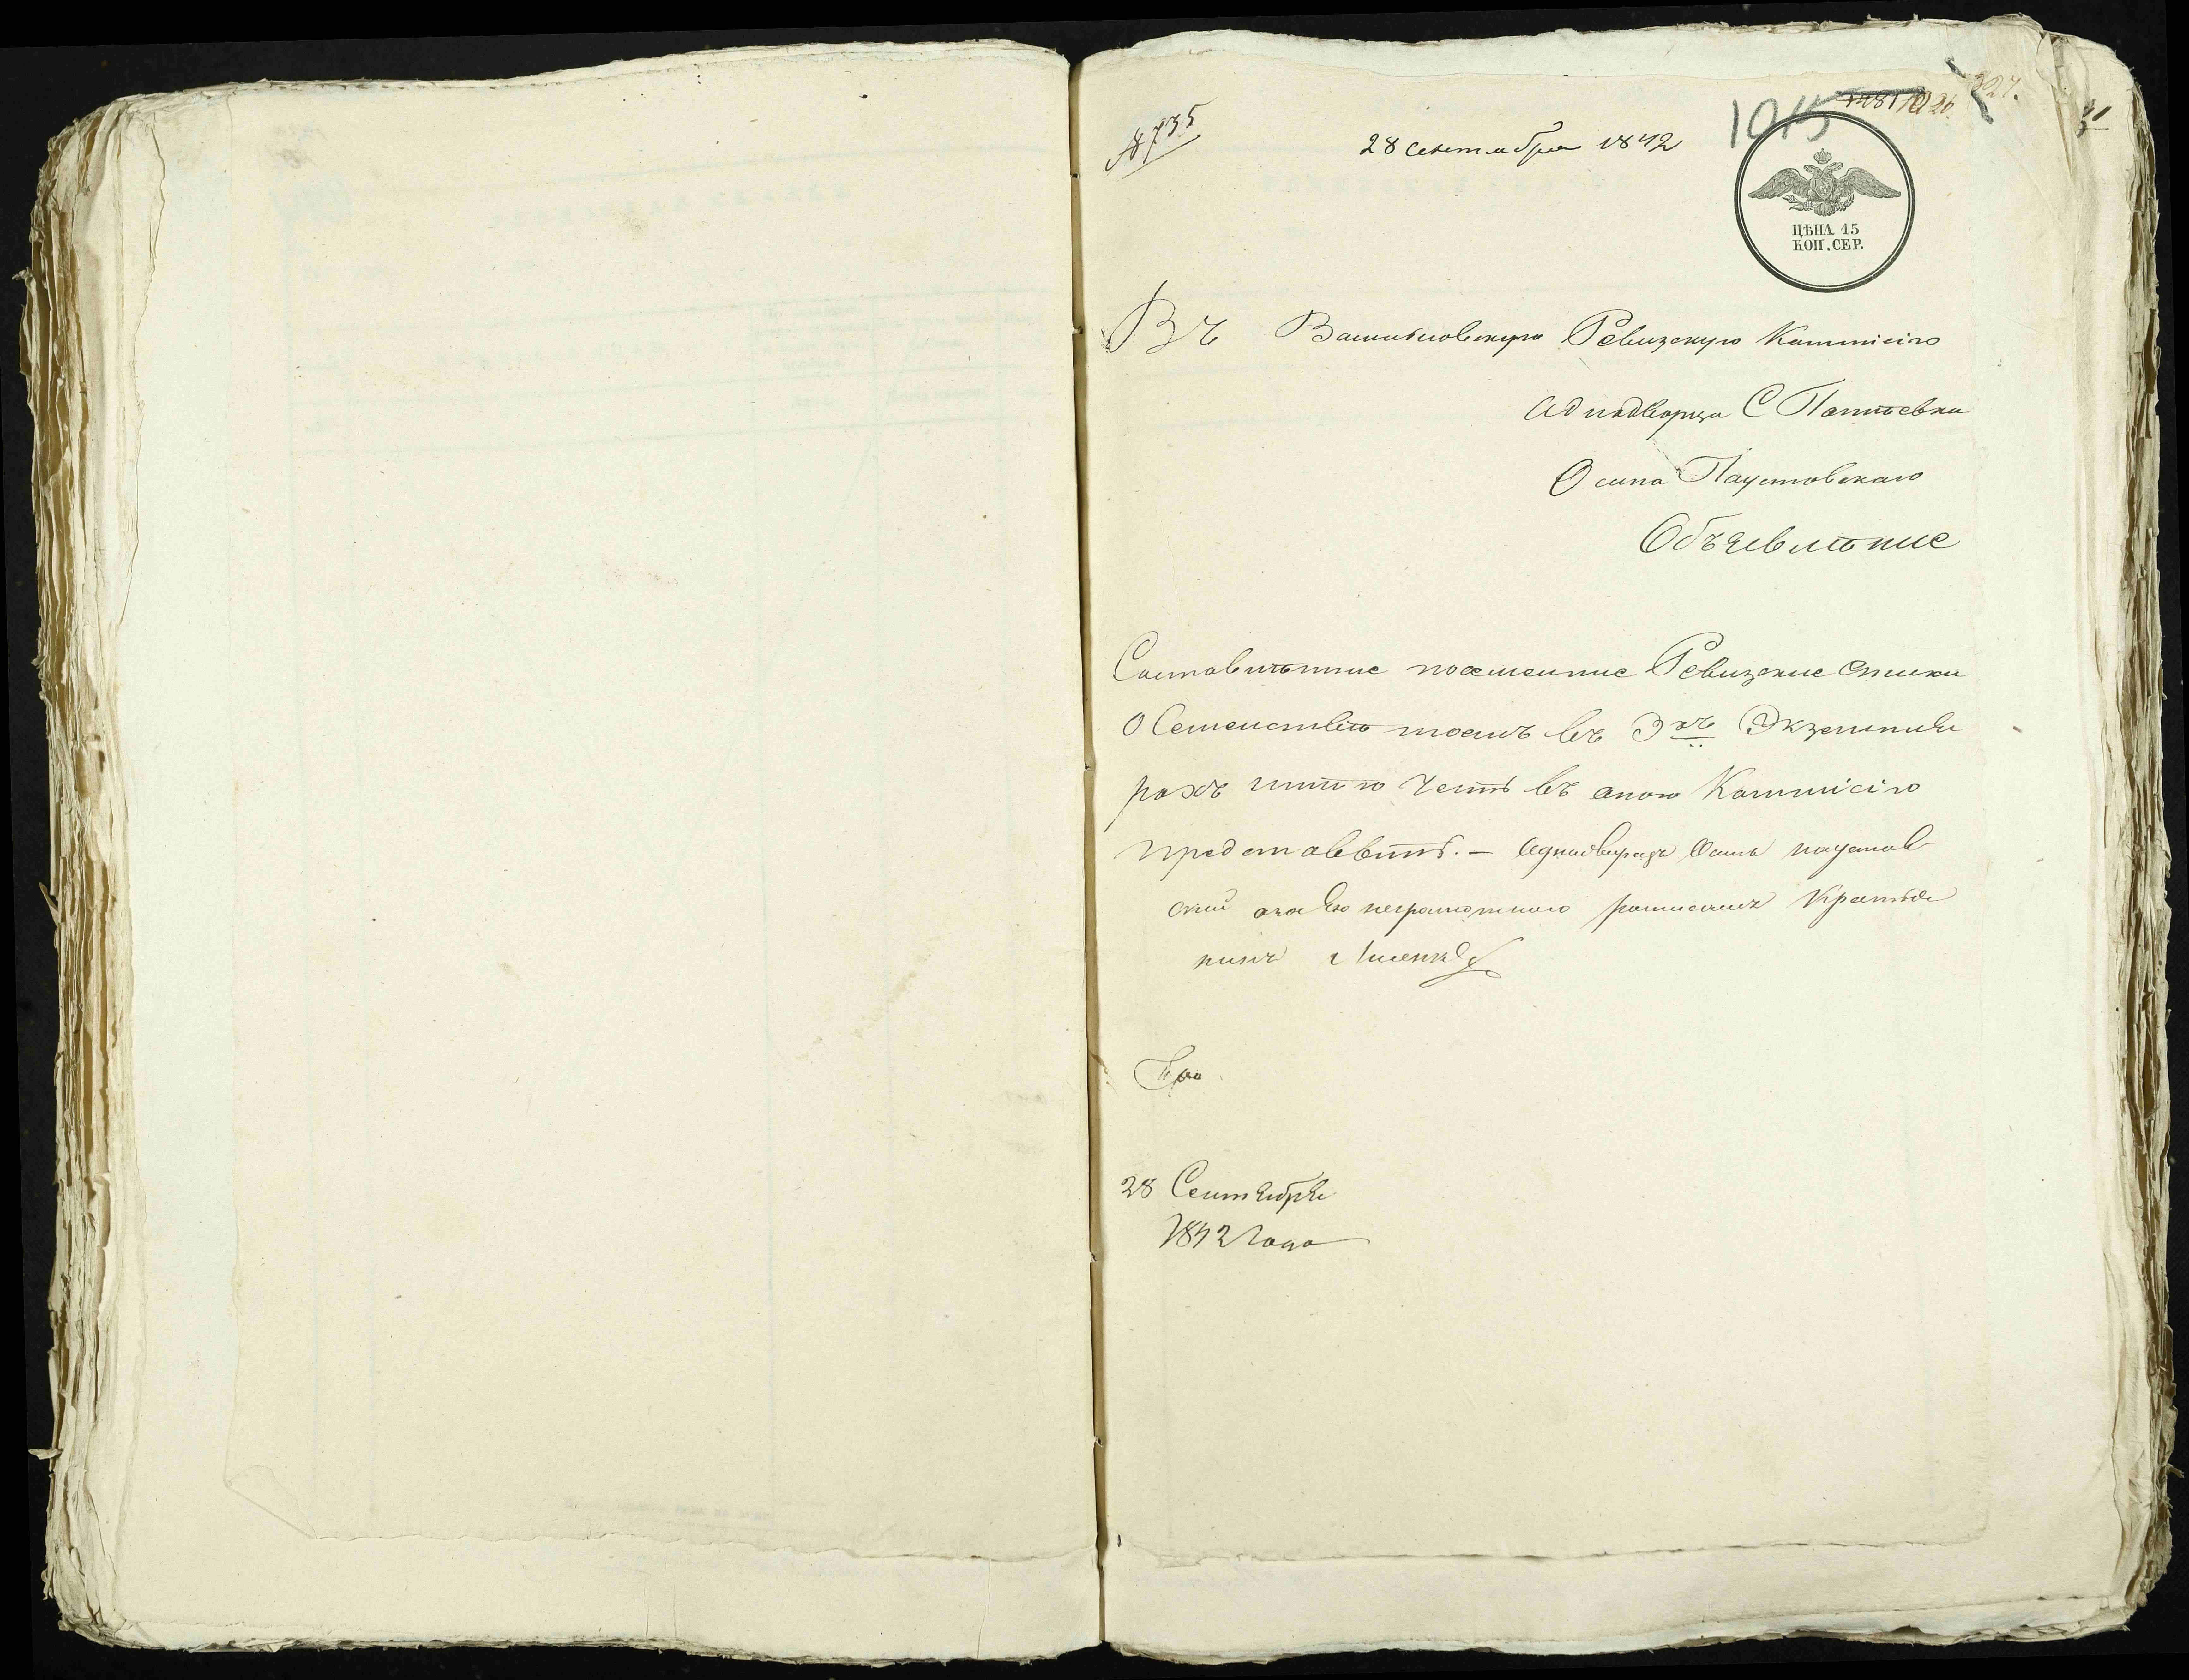 № 8735
28 сентября 1842
1015
327.
ЦѢНА 15
КОП. СЕР.
Въ Васильковскую Ревизскую Каммісію
Аднадворца С Пиптѣевки
Осипа Паустовскаго
Объявлѣние
Саставлѣнние поеменние Ревизские Списки
О Семействѣ моемъ въ 3хъ Экземпля
рахъ имѣю Честь въ аною Каммісію
представвить. - Аднадворецъ Осипъ паустов
ский а за его неграмотнаго росписался
28 Сентября
1842 Года